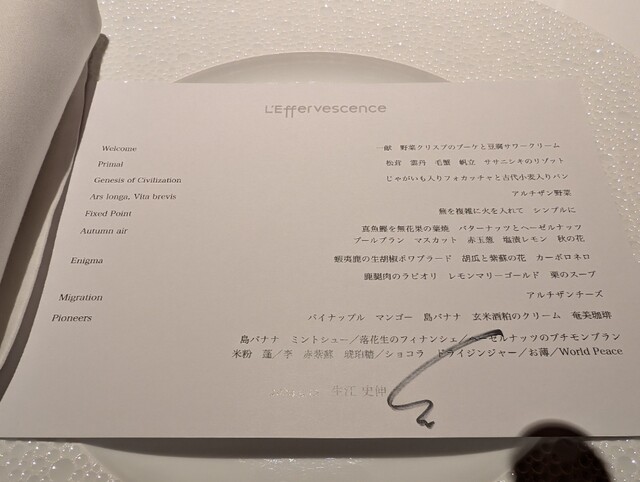 L'Effervescence
Welcome 一献 野菜クリスプのブーケと豆腐サワークリーム
Primal 松茸 雲丹 毛蟹 帆立 ササニシキのリゾット
Genesis of Civilization じゃがいも入りフォカッチャと古代小麦入りパン
Ars longa, Vita brevis アルチザン野菜
Fixed Point 蕪を複雑に火を入れて シンプルに
Autumn air 真魚鰹を無花果の葉焼 バターナッツとヘーゼルナッツ
ブールブラン マスカット 赤玉葱 塩漬レモン 秋の花
Enigma 蝦夷鹿の生胡椒ポワブラード 胡瓜と紫蘇の花 カーボロネロ
鹿腿肉のラビオリ レモンマリーゴールド 栗のスープ
Migration アルチザンチーズ
Pioneers パイナップル マンゴー 島バナナ 玄米酒粕のクリーム 奄美珈琲
島バナナ ミントシュー/落花生のフィナンシェ/ヘーゼルナッツのプチモンブラン
米粉 蓮/李 赤紫蘇 琥珀糖/ショコラ ドライジンジャー/お薄/World Peace
生江 史伸